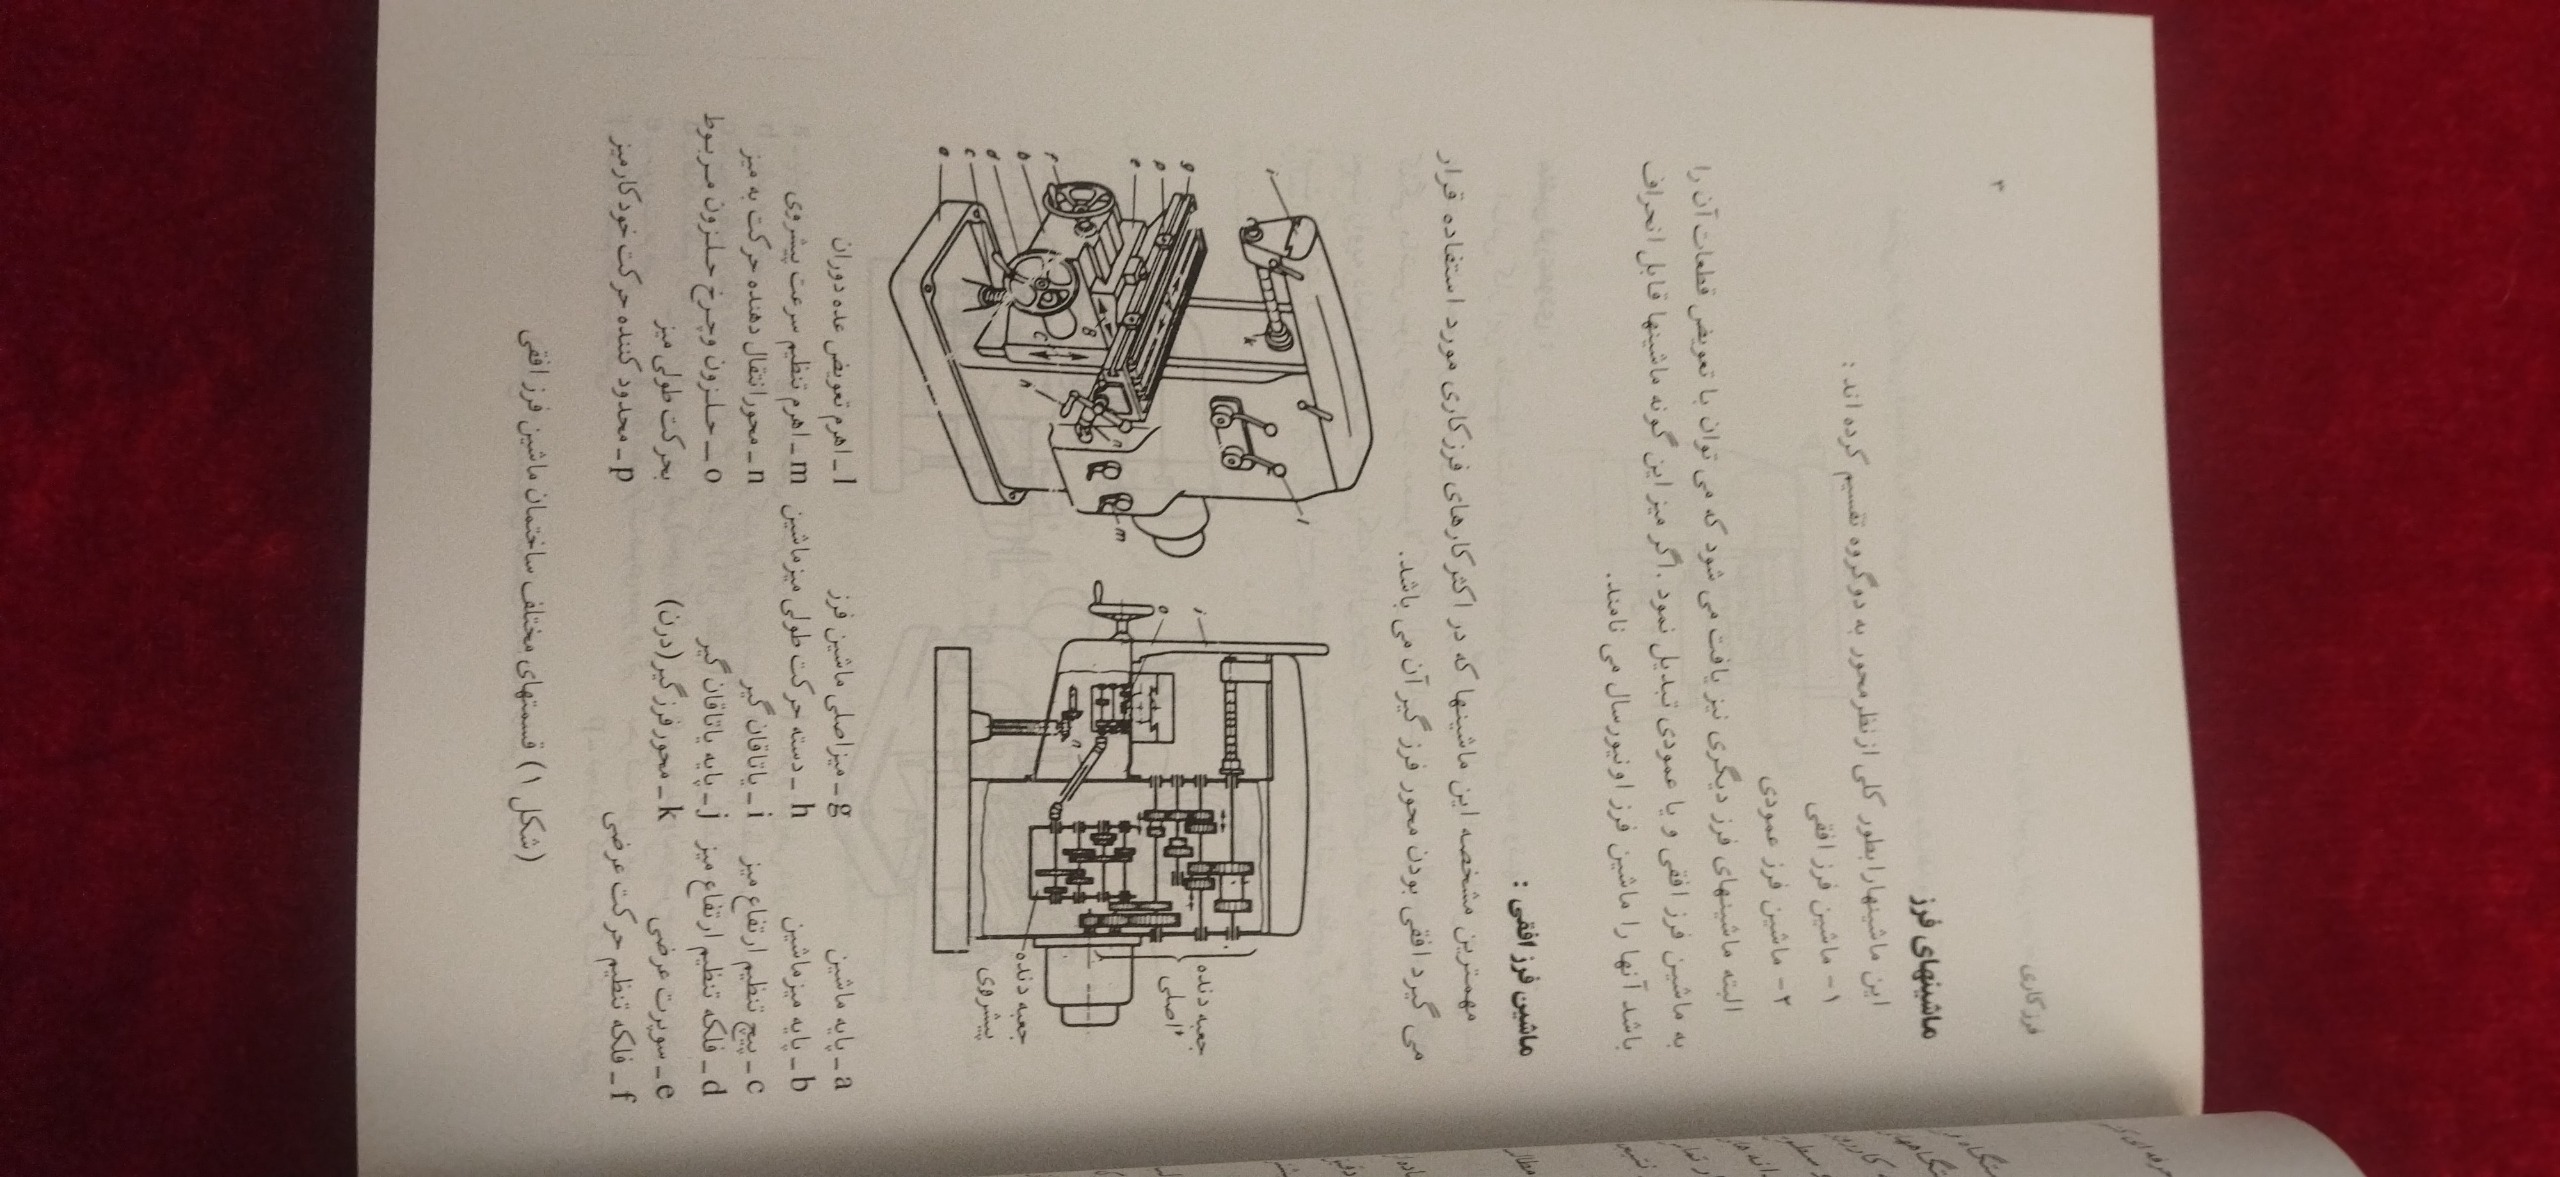 فرزکاری
۳
ماشینهای فرز
این ماشینها رابطور کلی ازنظرمحور به دوگروه تقسیم کرده اند :
۱- ماشین فرز افقی
۲- ماشین فرز عمودی
البته ماشینهای فرز دیگری نیز یافت می شود که می توان با تعویض قطعات آن را
به ماشین فرز افقی و یا عمودی تبدیل نمود .اگر میز این گونه ماشینها قابل انحراف
باشد آنها را ماشین فرز اونیورسال می نامند.
ماشین فرز افقی :
مهمترین مشخصه این ماشینها که در اکثر کارهای فرزکاری مورد استفاده قرار
می گیرد افقی بودن محور فرز گیر آن می باشد.
i
k
l
g
p
e
f
b
d
c
a
B
C
h
n
m
j
o
n
جعبه دنده
اصلی
جعبه دنده
پیشروی
a ـ پایه ماشین
b ـ پایه میزماشین
c ـ پیچ تنظیم ارتفاع میز
d ـ فلکه تنظیم ارتفاع میز
e ـ سوپرت عرضی
f ـ فلکه تنظیم حرکت عرضی
g ـ میزاصلی ماشین فرز
h ـ دسته حرکت طولی میزماشین
i ـ یاتاقان گیر
j ـ پایه یاتاقان گیر
k ـ محور فرزگیر (درن)
l ـ اهرم تعویض عده دوران
m ـ اهرم تنظیم سرعت پیشروی
n ـ محورانتقال دهنده حرکت به میز
o ـ حلزون وچرخ حلزون مربوط
بحرکت طولی میز
p ـ محدود کننده حرکت خودکارمیز
(شکل ۱) قسمتهای مختلف ساختمان ماشین فرز افقی